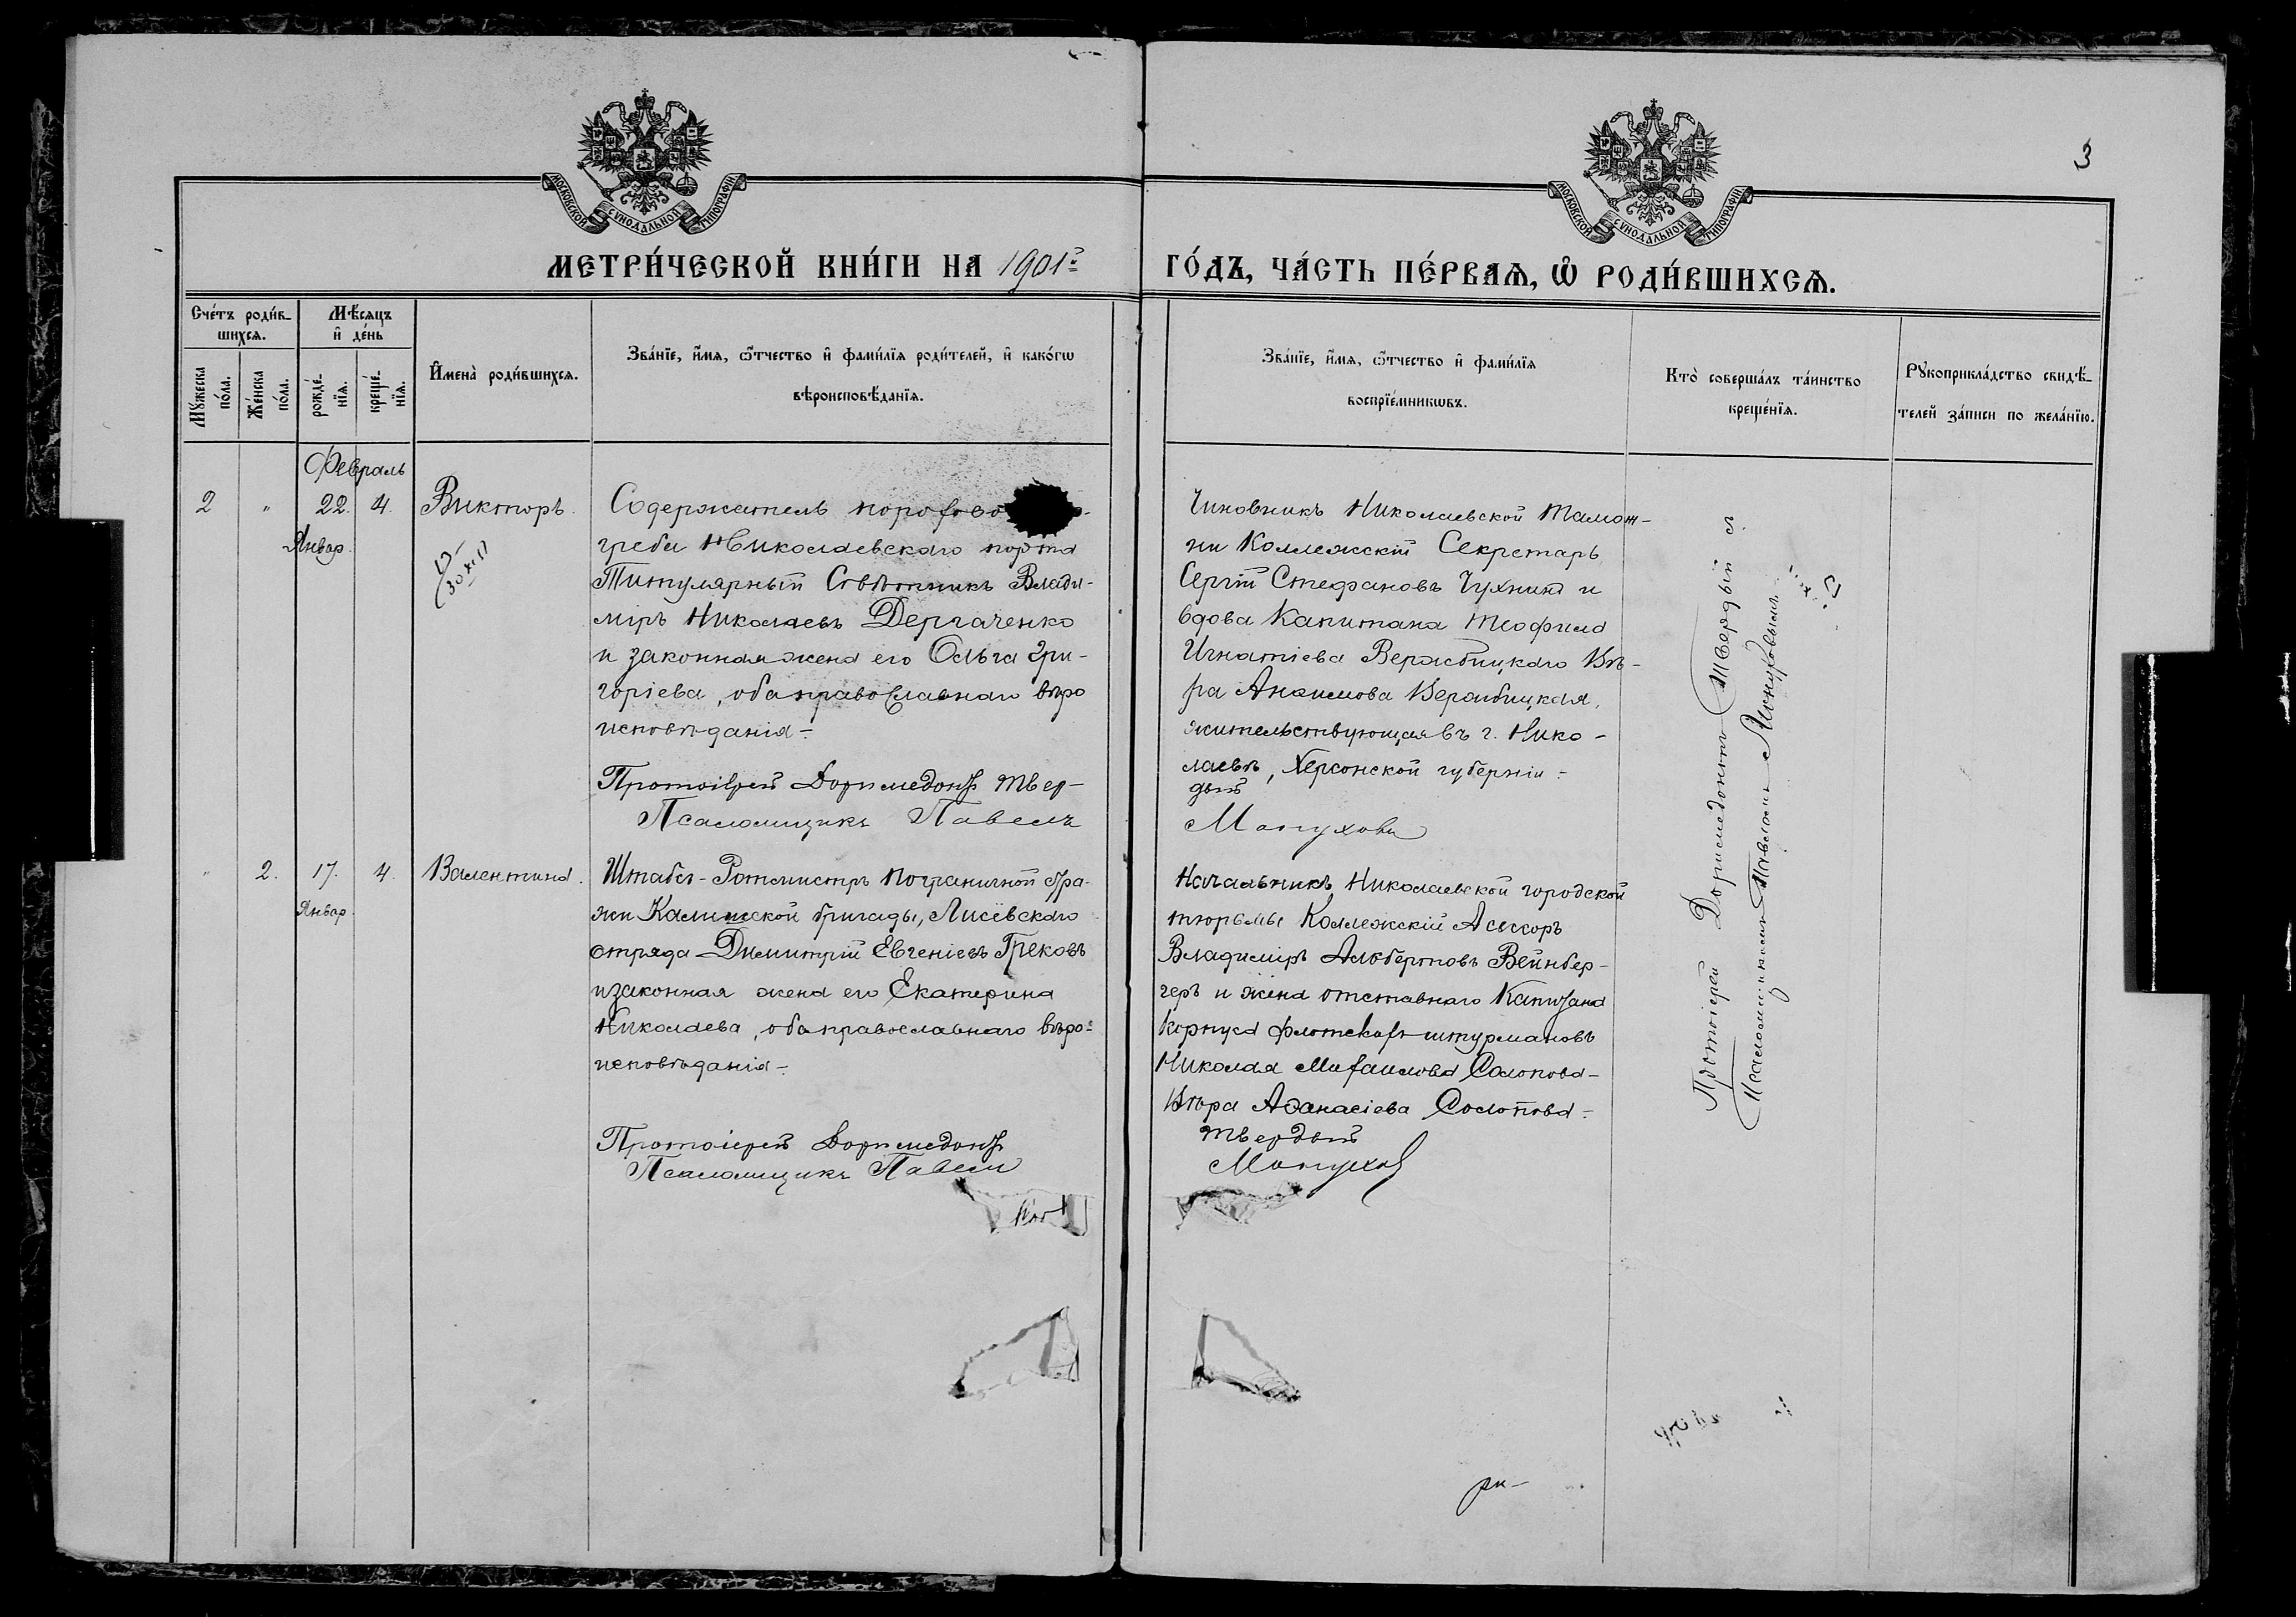 3
МОСКОВСКОЙ СѴНОДАЛЬНОЙ ТИПОГРАФІИ
МОСКОВСКОЙ СѴНОДАЛЬНОЙ ТИПОГРАФІИ
МЕТРИ́ЧЕСКОЙ КНИ́ГИ НА 1901й ГО́ДЪ, ЧА́СТЬ ПЕ́РВАѦ, Ѡ҆ РОДИ́ВШИХСѦ.
Сче́тъ роди́в-
шихсѧ.
Мꙋ́жеска по́ла.
Же́нска по́ла.
Мѣ́сѧцъ
и҆ де́нь
рожде́-
нїѧ.
креще́-
нїѧ.
И҆мена̀ роди́вшихсѧ.
Зва́нїе, и҆́мѧ, ѻ҆́тчество и҆ фами́лїѧ роди́телей, и҆ како́гѡ
вѣроисповѣ́данїѧ.
Зва́нїе, и҆́мѧ, ѻ҆́тчество и҆ фами́лїѧ
воспрїе́мникѡвъ.
Кто̀ соверша́лъ та́инство
креще́нїѧ.
Рꙋкоприкла́дство свидѣ́-
телей за́писи по жела́нїю.
Февраль
2 " 22. 4. Викторъ.
Январ.
Содержатель порохово
греба Николаевскаго порта
Титулярный Совѣтникъ Влади-
міръ Николаевъ Дергаченко
и законная жена его Ольга Гри-
горіева, оба православнаго вѣро
исповѣданія.-
Протоіерей Доримедонтъ Твер-
Псаломщикъ Павелъ
Чиновникъ Николаевской Тамож-
ни Коллежскій Секретарь
Сергій Стефановъ Чухнин и
вдова Капитана Теофила
Игнатіева Вержбицкаго Вѣ-
ра Анфимова Вержбицкая,
жительствующая въ г. Нико-
лаевѣ, Херсонской губерніи.-
дый
Мануховъ
" 2. 17. 4. Валентина.
Январ.
Штабсъ-Ротмистръ Пограничной стра-
жи Калишской бригады, Лисѣвскаго
отряда Димитрій Евгеніевъ Грековъ
и законная жена его Екатерина
Николаева, оба православнаго вѣро-
исповѣданія.-
Протоіерей Доримедонтъ
Псаломщикъ Павелъ
Начальникъ Николаевской городской
тюрьмы Коллежскій Асессоръ
Владиміръ Альбертовъ Вейнбер-
геръ и жена отставнаго Капитана
Корпуса флотскихъ штурмановъ
Николая Михаилова Солопова-
Вѣра Афанасіева Солопова.-
Твердый
Манухов
Протоіерей Доримедонтъ Твердый с
Псаломщикомъ Павломъ Мануховымъ.